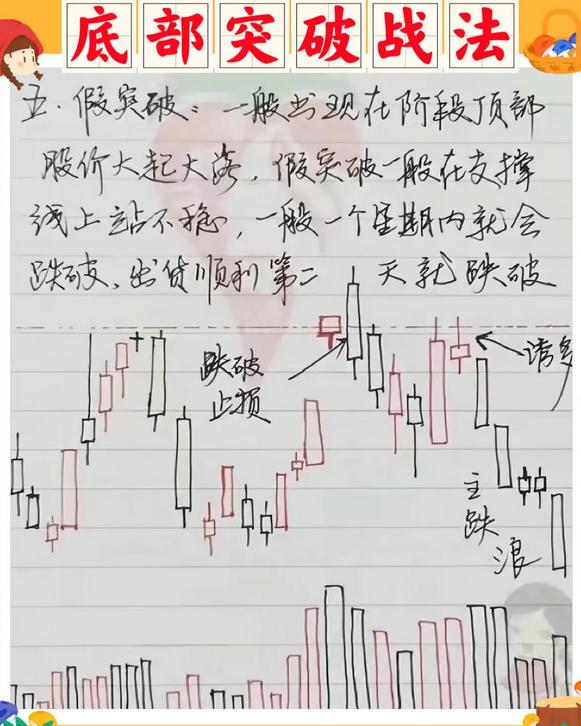 底部突破战法
五.假突破:一般出现在阶段顶部
股价大起大落,假突破一般在支撑
线上站不稳,一般一个星期内就会
跌破、出货顺利第二天就跌破
跌破
止损
诱多
主
跌
浪